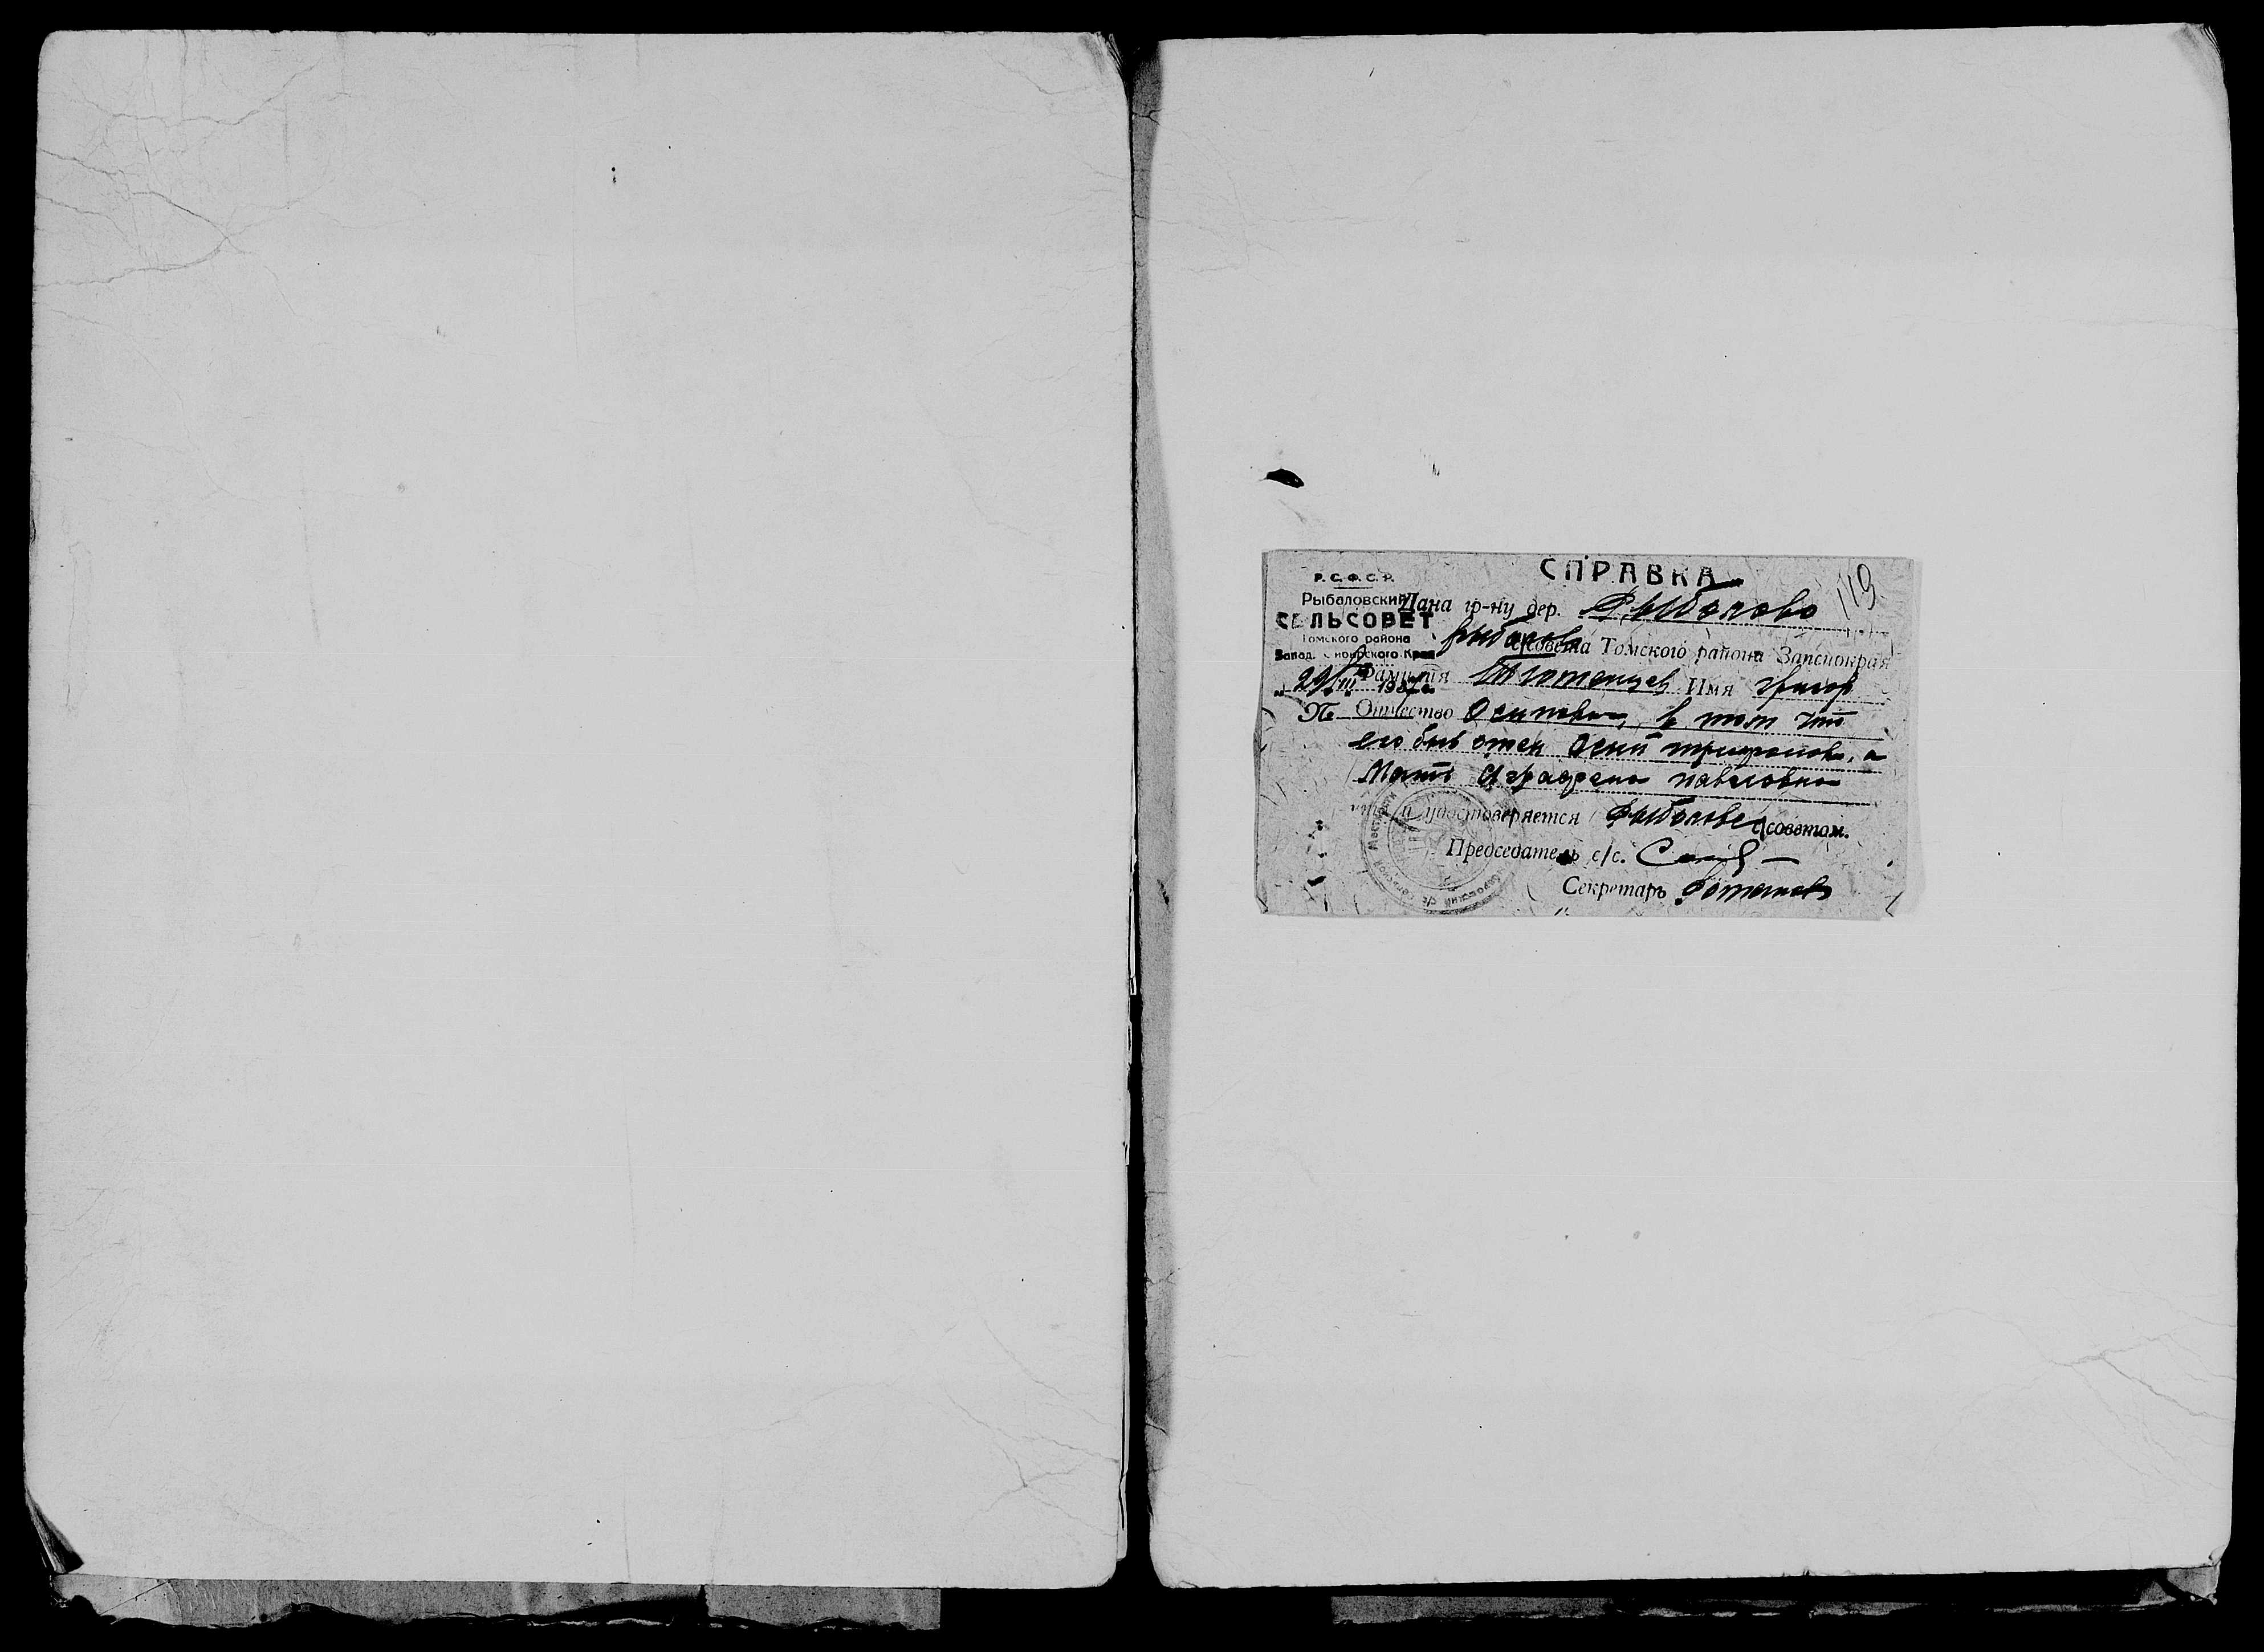 СПРАВКА
119
Р. С. Ф. С. Р.
Рыбаловский
СЕЛЬСОВЕТ
Томского района
Запад. Сибирского Края
29/III 1937 г.
№
Дана гр-ну дер. Рыболово
Рыболов с/совета Томского района Запсибкрая
Фамилия Имя Григор
Отчество Осипович, в том что
его был отец Осип Трифонов, а
Мать Аграфена Павловна
что и удостоверяется Рыболовс с/советом.
Председатель с/с.
Секретарь